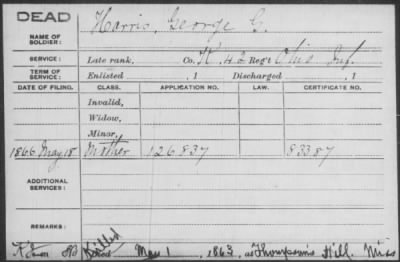 DEAD
Harris, George G.
NAME OF SOLDIER:
SERVICE: Late rank, Co. K, 42 Reg't Ohio Inf.
TERM OF SERVICE: Enlisted , 1 Discharged , 1
DATE OF FILING. CLASS. APPLICATION NO. LAW. CERTIFICATE NO.
Invalid,
Widow,
Minor,
1866 May 18 Mother 126837 83387
ADDITIONAL SERVICES:
REMARKS:
Killed May 1, 1863, at Thompson's Hill, Miss